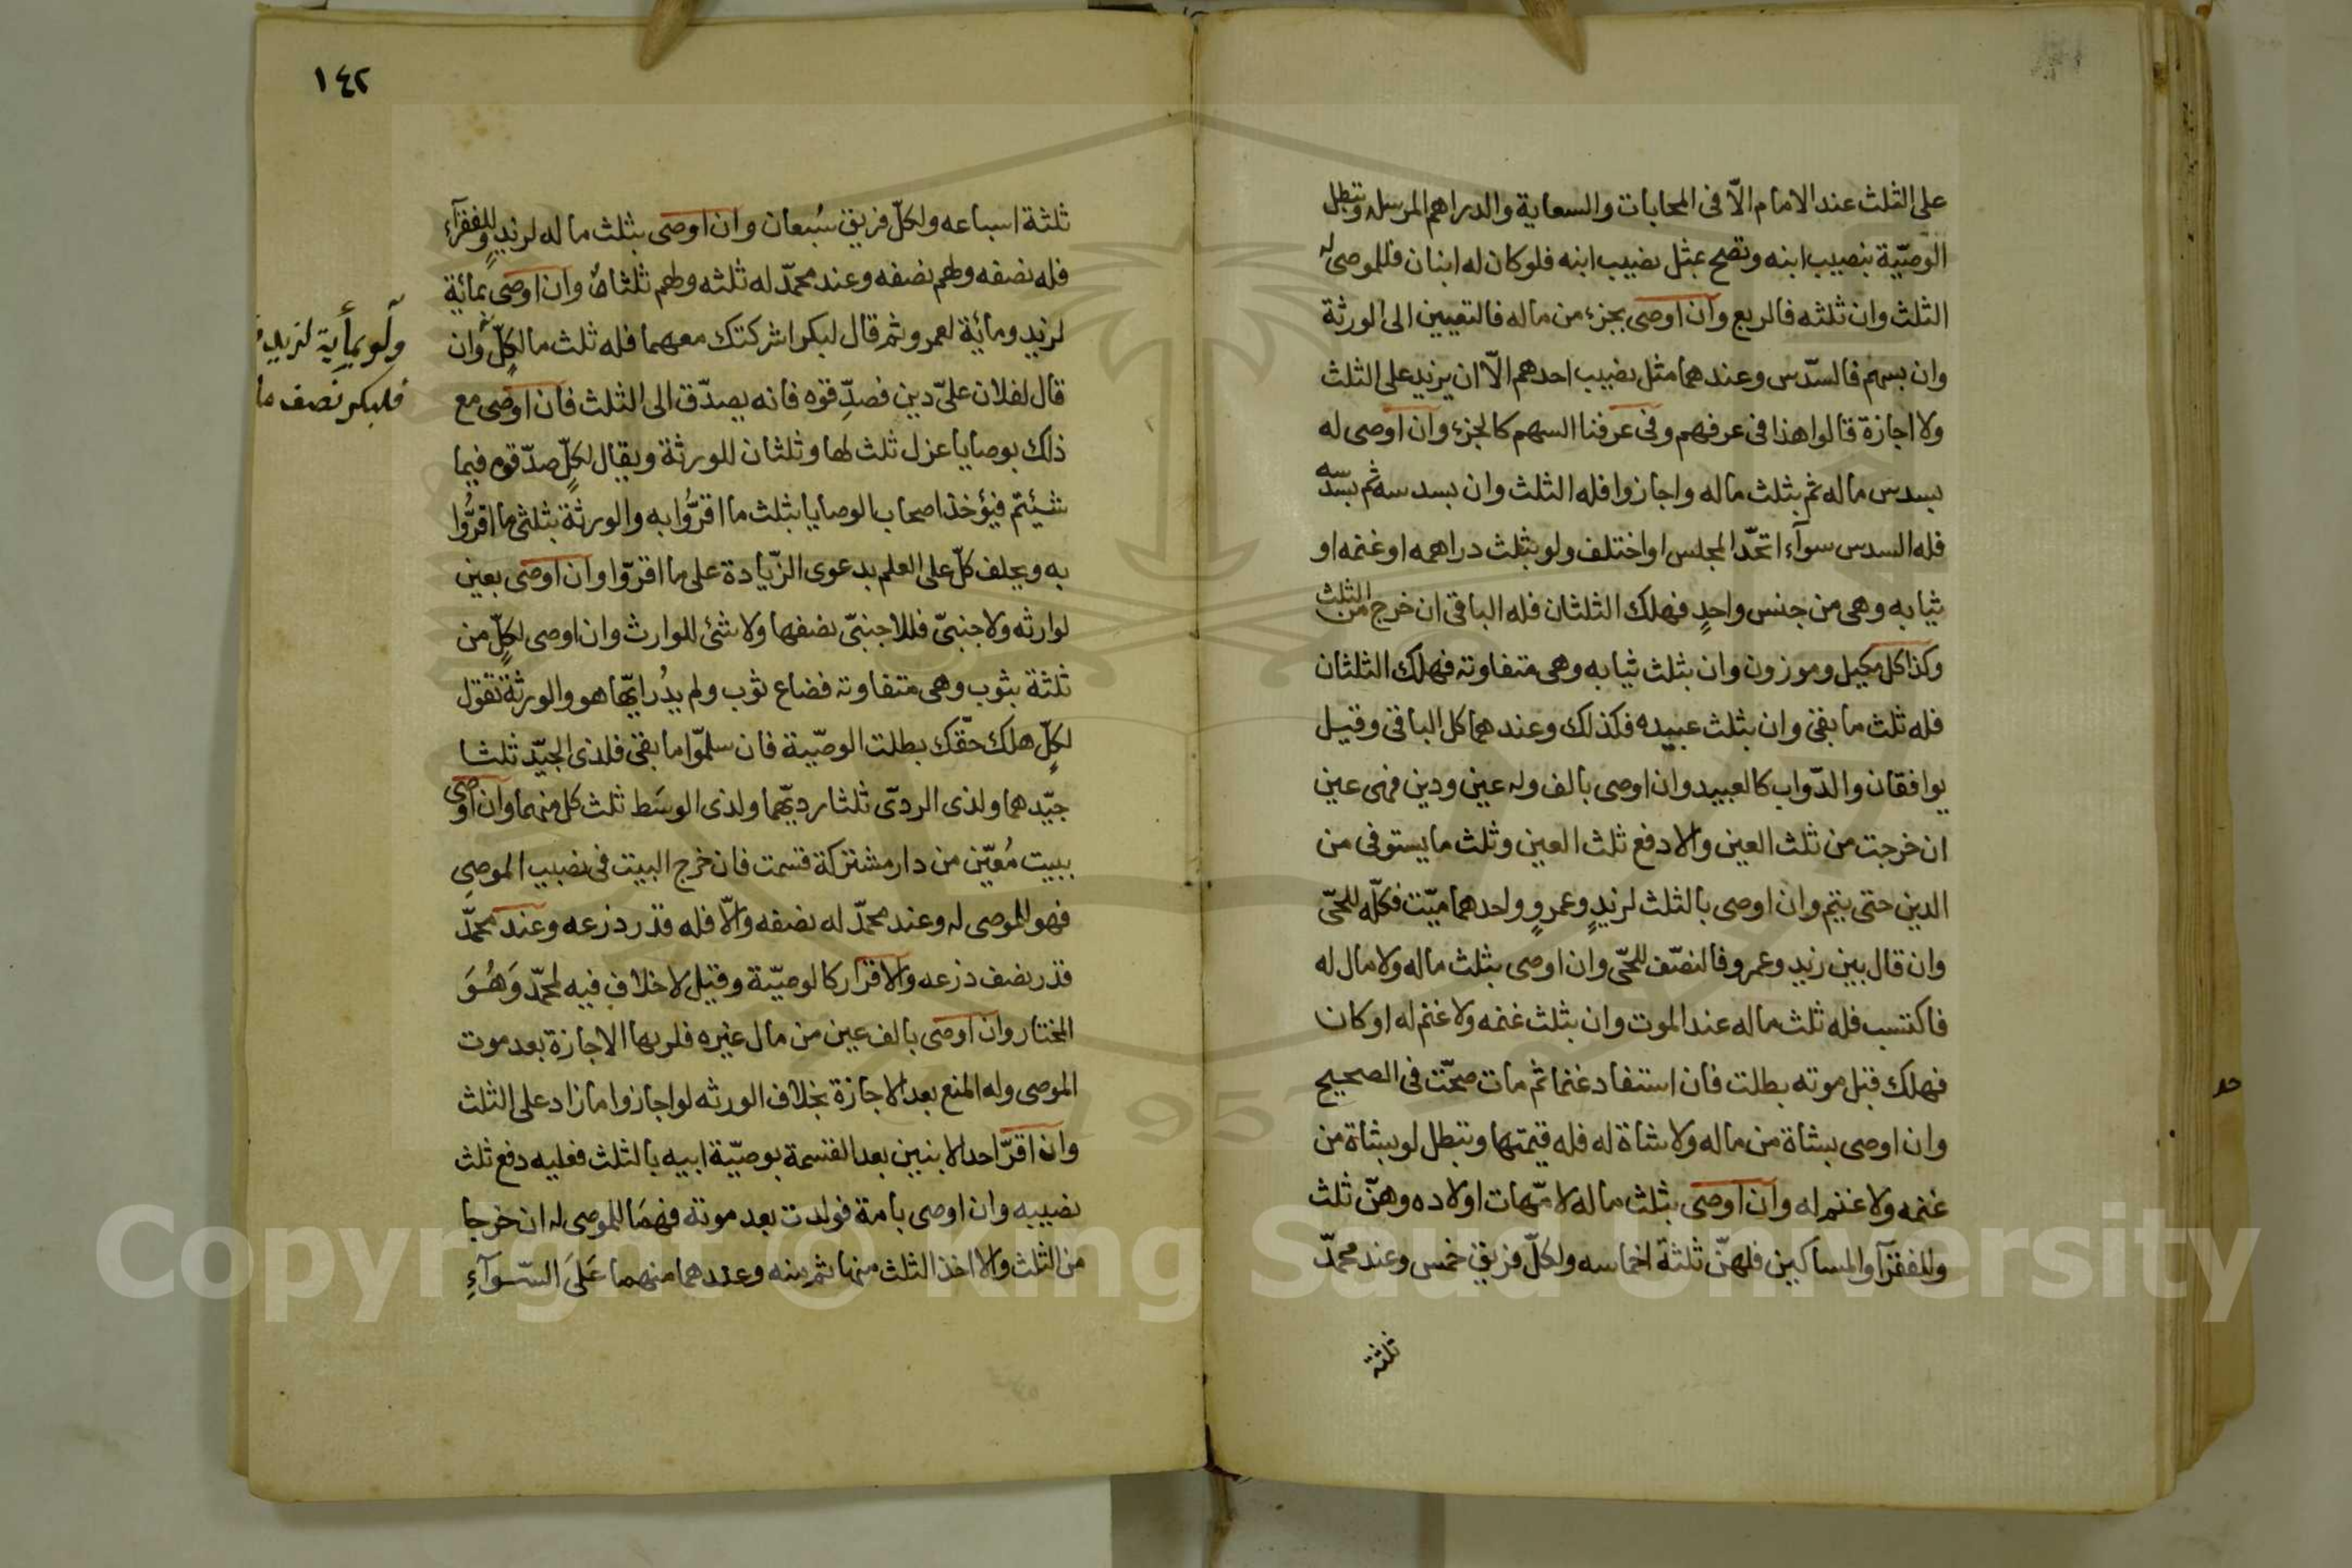 على الثلث عند الامام الّا فى المحابات والسعاية والدراهم المرسله وتبطل
الوصيّية بنصيب ابنه وتصح بمثل نصيب ابنه فلو كان له ابنان فللموصى له
الثلث وان ثلثه فالربع وان اوصى بجزء من ماله فالتعيين الى الورثة
وان بسهم فالسّدس وعندهما مثل نصيب احدهم الّا ان يزيد على الثلث
ولا اجازة قالوا هذا فى عرفهم وفى عرفنا السهم كالجزء وان اوصى له
بسدس ماله ثم بثلث ماله واجازوا فله الثلث وان بسدسه ثم بسدسه
فله السدس سوآء اتحّد المجلس او اختلف ولو بثلث دراهمه او غنمه او
ثيابه وهى من جنس واحدٍ فهلك الثلثان فله الباقى ان خرج من الثلث
وكذا كل مكيل وموزون وان بثلث ثيابه وهى متفاوته فهلك الثلثان
فله ثلث ما بقى وان بثلث عبيده فكذلك وعندهما كل الباقى وقيل
يوافقان والدّواب كالعبيد وان اوصى بالف وله عين ودين فهى عين
ان خرجت من ثلث العين والا دفع ثلث العين وثلث ما يستوفى من
الدين حتى يتم وان اوصى بالثلث لزيدٍ وعمروٍ واحدهما ميّت فكلّه للحىّ
وان قال بين زيد وعمرو فالنصّف للحىّ وان اوصى بثلث ماله ولا مال له
فاكتسب فله ثلث ماله عند الموت وان بثلث غنمه ولا غنم له او كان
فهلك قبل موته بطلت فان استفاد غنما ثم مات صحّت فى الصحيح
وان اوصى بشاة من ماله ولا شاة له فله قيمتها وتبطل لو بشاة من
غنمه ولا غنم له وان اوصى بثلث ماله لامّهات اولاده وهنّ ثلث
وللفقرآ والمساكين فلهنّ ثلثة اخماسه ولكلّ فريق خمس وعند محمدّ
ثلثة
١٤٢
ثلثة اسباعه ولكلّ فريق سُبعان وان اوصى بثلث ماله لزيدٍ وللفقرآء
فله نصفه ولهم نصفه وعند محمدّ له ثلثه ولهم ثلثاهُ وان اوصى بمائة
لزيد ومائة لعمرو ثم قال لبكر اشركتك معهما فله ثلث ما لكلٍّ وان
قال لفلان علىّ دين فصدِّقوه فانه يصدّق الى الثلث فان اوصى مع
ذلك بوصايا عزل ثلث لها وثلثان للورثة ويقال لكلٍّ صدّقوه فيما
شيئتم فيؤخذ اصحاب الوصايا بثلث ما اقرُّوا به والورثة بثلثى ما اقرُّوا
به ويحلف كلّ على العلم بدعوى الزّيادة على ما اقرّوا وان اوصى بعين
لوارثه ولاجنبىّ فللاجنبىّ نصفها ولا شئ للوارث وان اوصى لكلٍّ من
ثلثة بثوب وهى متفاوته فضاع ثوب ولم يدُر ايّها هو والورثة تقول
لكلٍّ هلك حقّك بطلت الوصيّة فان سلموّا ما بقى فلذى الجيّد ثلثا
جيّدهما ولذى الردىّ ثلثا رديّهما ولذى الوسَط ثلث كل منهما وان اوصى
ببيت مُعيّن من دار مشتركة قسمت فان خرج البيت فى نصيب الموصى
فهو للموصى له وعند محمدّ له نصفه والّا فله قدر ذرعه وعند محمدّ
قدر نصف ذرعه والاقرار كالوصيّة وقيل لا خلاف فيه لمحمدّ وَهُوَ
المختار وان اوصى بالف عين من مال غيره فلربها الاجازة بعد موت
الموصى وله المنع بعد الاجازة بخلاف الورثه لو اجازوا ما زاد على الثلث
وان اقرّ احد الابنين بعد القسمة بوصيّة ابيه بالثلث فعليه دفع ثلث
نصيبه وان اوصى بامة فولدت بعد موته فهمَا للموصى له ان خرجا
من الثلث والا اخذ الثلث منها ثم منه وعندهما منهما عَلَى السّوآءِ
ولو بمأية لزيد
فلبكر نصف ما
Copyright © King Saud University
1957